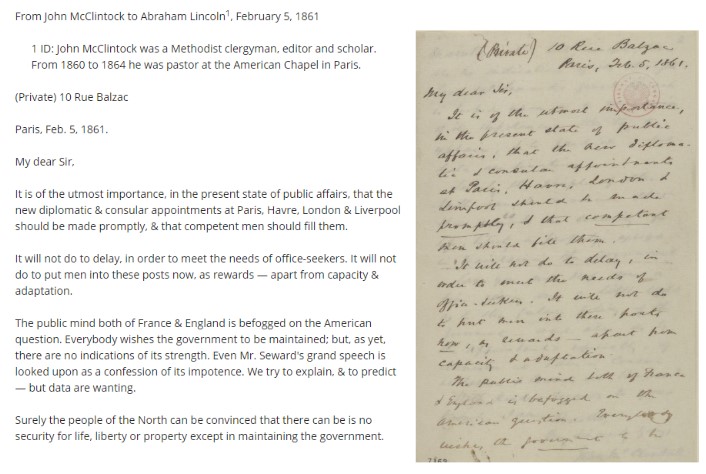 From John McClintock to Abraham Lincoln1, February 5, 1861
1 ID: John McClintock was a Methodist clergyman, editor and scholar.
From 1860 to 1864 he was pastor at the American Chapel in Paris.
(Private) 10 Rue Balzac
Paris, Feb. 5, 1861.
My dear Sir,
It is of the utmost importance, in the present state of public affairs, that the
new diplomatic & consular appointments at Paris, Havre, London & Liverpool
should be made promptly, & that competent men should fill them.
It will not do to delay, in order to meet the needs of office-seekers. It will not
do to put men into these posts now, as rewards — apart from capacity &
adaptation.
The public mind both of France & England is befogged on the American
question. Everybody wishes the government to be maintained; but, as yet,
there are no indications of its strength. Even Mr. Seward's grand speech is
looked upon as a confession of its impotence. We try to explain, & to predict
— but data are wanting.
Surely the people of the North can be convinced that there can be is no
security for life, liberty or property except in maintaining the government.
(Private) 10 Rue Balzac
Paris, Feb. 5, 1861.
My dear Sir,
It is of the utmost importance,
in the present state of public
affairs, that the new diploma-
tic & consular appointments
at Paris, Havre, London &
Liverpool should be made
promptly, & that competent
men should fill them.
It will not do to delay, in
order to meet the needs of
office-seekers. It will not do
to put men into these posts
now, as rewards — apart from
capacity & adaptation.
The public mind both of France
& England is befogged on the
American question. Everybody
wishes the government to be